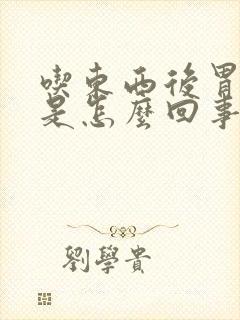 喫東西後胃
是怎麼回事
劉學貴